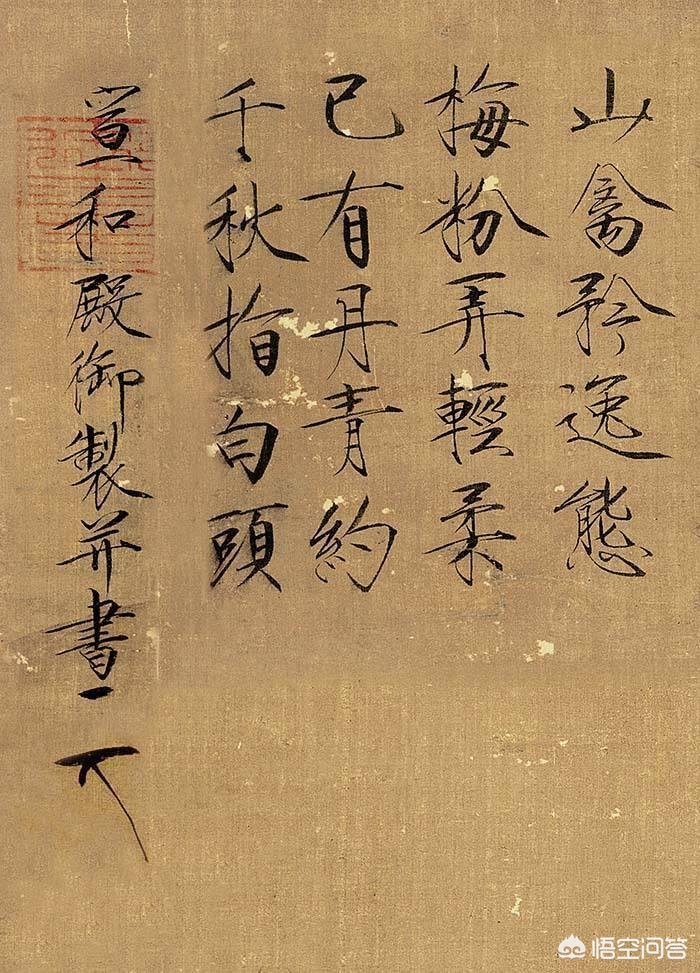 山禽矜逸態
梅粉弄輕柔
已有丹青約
千秋指白頭
宣和殿御製并書
天
悟空问答